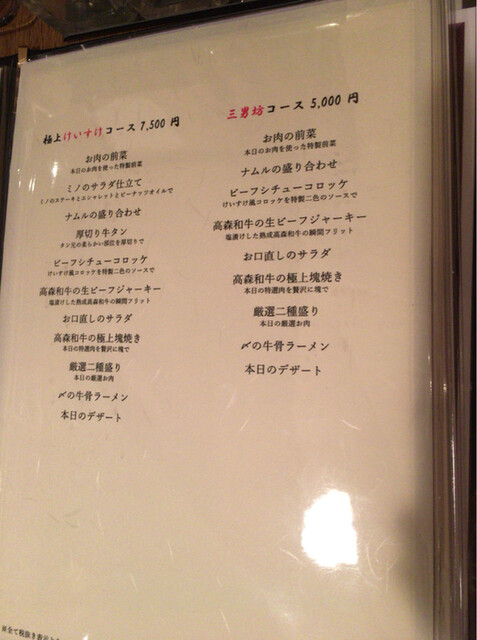 極上けいすけコース 7,500 円
お肉の前菜
本日のお肉を使った特製前菜
ミノのサラダ仕立て
ミノのステーキとエシャレットとピーナッツオイルで
ナムルの盛り合わせ
厚切り牛タン
タン元の柔らかい部位を厚切りで
ビーフシチューコロッケ
けいすけ風コロッケを特製二色のソースで
高森和牛の生ビーフジャーキー
塩漬けした熟成高森和牛の瞬間フリット
お口直しのサラダ
高森和牛の極上塊焼き
本日の特選肉を贅沢に塊で
厳選二種盛り
本日の厳選お肉
〆の牛骨ラーメン
本日のデザート
三男坊コース 5,000 円
お肉の前菜
本日のお肉を使った特製前菜
ナムルの盛り合わせ
ビーフシチューコロッケ
けいすけ風コロッケを特製二色のソースで
高森和牛の生ビーフジャーキー
塩漬けした熟成高森和牛の瞬間フリット
お口直しのサラダ
高森和牛の極上塊焼き
本日の特選肉を贅沢に塊で
厳選二種盛り
本日の厳選お肉
〆の牛骨ラーメン
本日のデザート
※全て税抜き表示